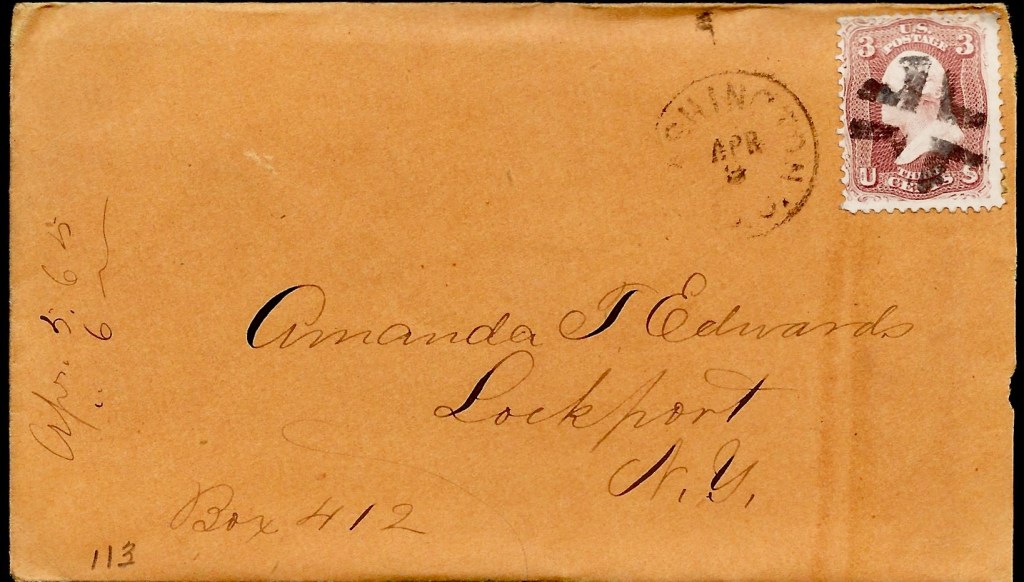 U.S.
POSTAGE
3 3
THREE
CENTS
U S
WASHINGTON
APR
D.C.
Amanda T Edwards
Lockport
N. Y.
Box 412
113
Apr. 5. 65
" 6